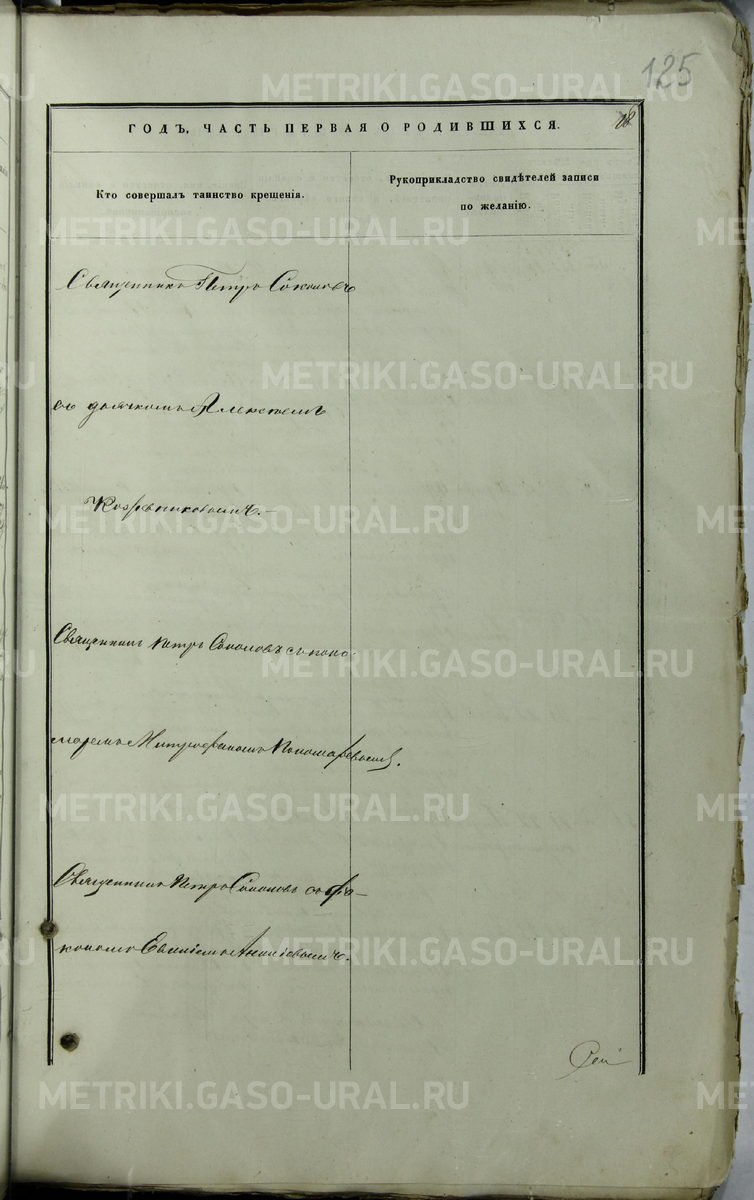 125
18.
ГОДЪ, ЧАСТЬ ПЕРВАЯ О РОДИВШИХСЯ.
Кто совершалъ таинство крещенія.
Рукоприкладство свидѣтелей записи
по желанію.
Священникъ Петръ Соколовъ
съ дьячкомъ Алексѣемъ
Священникъ Петръ Соколовъ съ поно-
маремъ Митрофаномъ Пономаревымъ.
Священникъ Петръ Соколовъ съ диа-
кономъ
METRIKI.GASO-URAL.RU